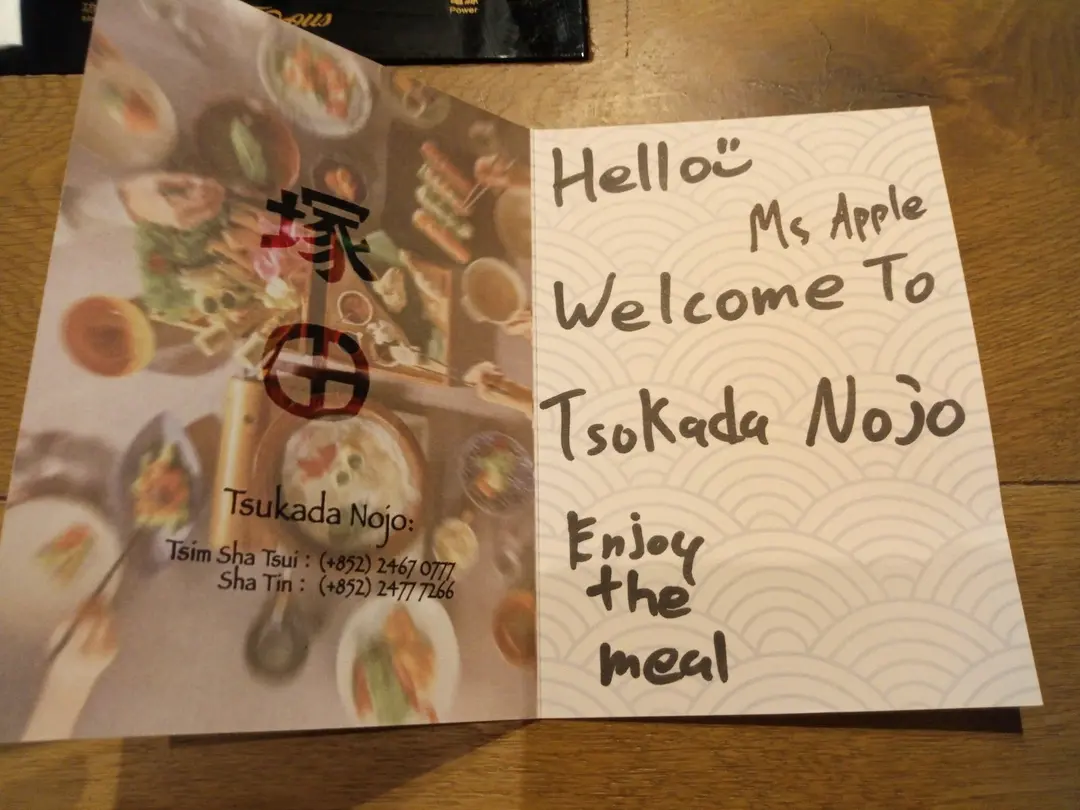 Power
塚
田
Tsukada Nojo:
Tsim Sha Tsui : (+852) 2467 0777
Sha Tin : (+852) 2477 7266
Hello
Ms Apple
Welcome To
Tsokada Nojo
Enjoy
the
meal